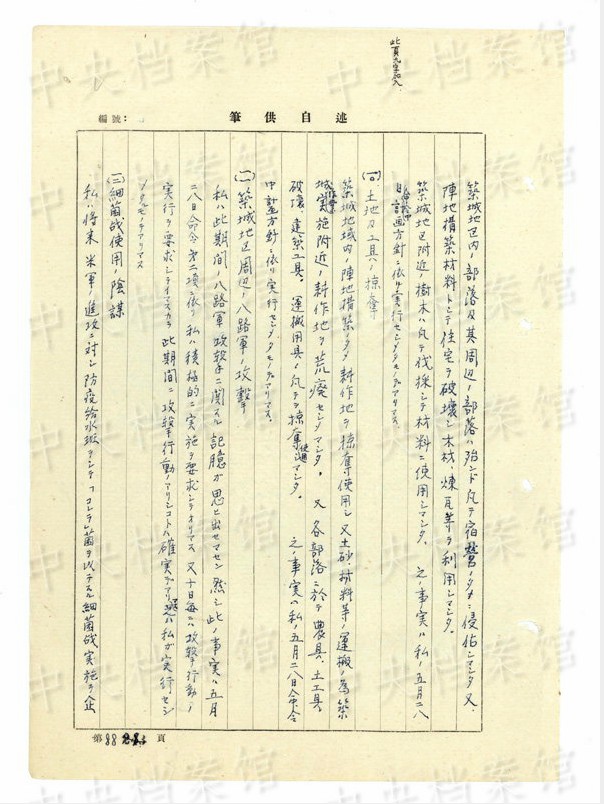 此頁弐字加入
編號：
筆供自述
築城地区内ノ部落及其周辺ノ部落ハ殆ンド凡テ宿営ノタメニ侵佔シマシタ 又
陣地構築材料トシテ住宅ヲ破壊シ木材、煉瓦等ヲ利用シマシタ。
築城地区附近ノ樹木ハ凡テ伐採シテ材料ニ使用シマシタ。 之ノ事実ハ私ノ五月二八
日命令中計画方針ニ依リ実行センタモノデアリマス。
土地及工具ノ掠奪
築城地域内ノ陣地構築ノタメ耕作地ヲ掠奪使用シ 又土砂、材料等ノ運搬ノ為築
城実施附近ノ耕作地ヲ荒廃センメマシタ。 又各部落ニ於テ農具、土工具、
破壊、建築工具、運搬用具ノ凡テヲ掠奪使用シマシタ。 之ノ事実ハ私ノ五月二八日命令
中計画方針ニ依リ実行センタモノデアリマス。
(二) 築城地区周辺ノ八路軍ノ攻撃
私ハ此期間ノ八路軍攻撃ニ関スル記臆ガ思ヒ出セマセン 然シ此ノ事実ハ五月
二八日命令第二項ニ依リ私ハ積極的ニ実施ヲ要求シテオリマス 又十日毎ニ攻撃行動ノ
実行ヲ要求シテイマスカラ此期間ニ攻撃行動ノアリシコトハ確実デアリ之ハ私ガ実行セシ
メタモノデアリマス
(三) 細菌戦使用ノ陰謀
私ハ将来米軍ノ進攻ニ対シ防疫給水班ヲシテ「コレラ」菌ヲ以テスル細菌戦実施ヲ企
第 頁
中央档案馆